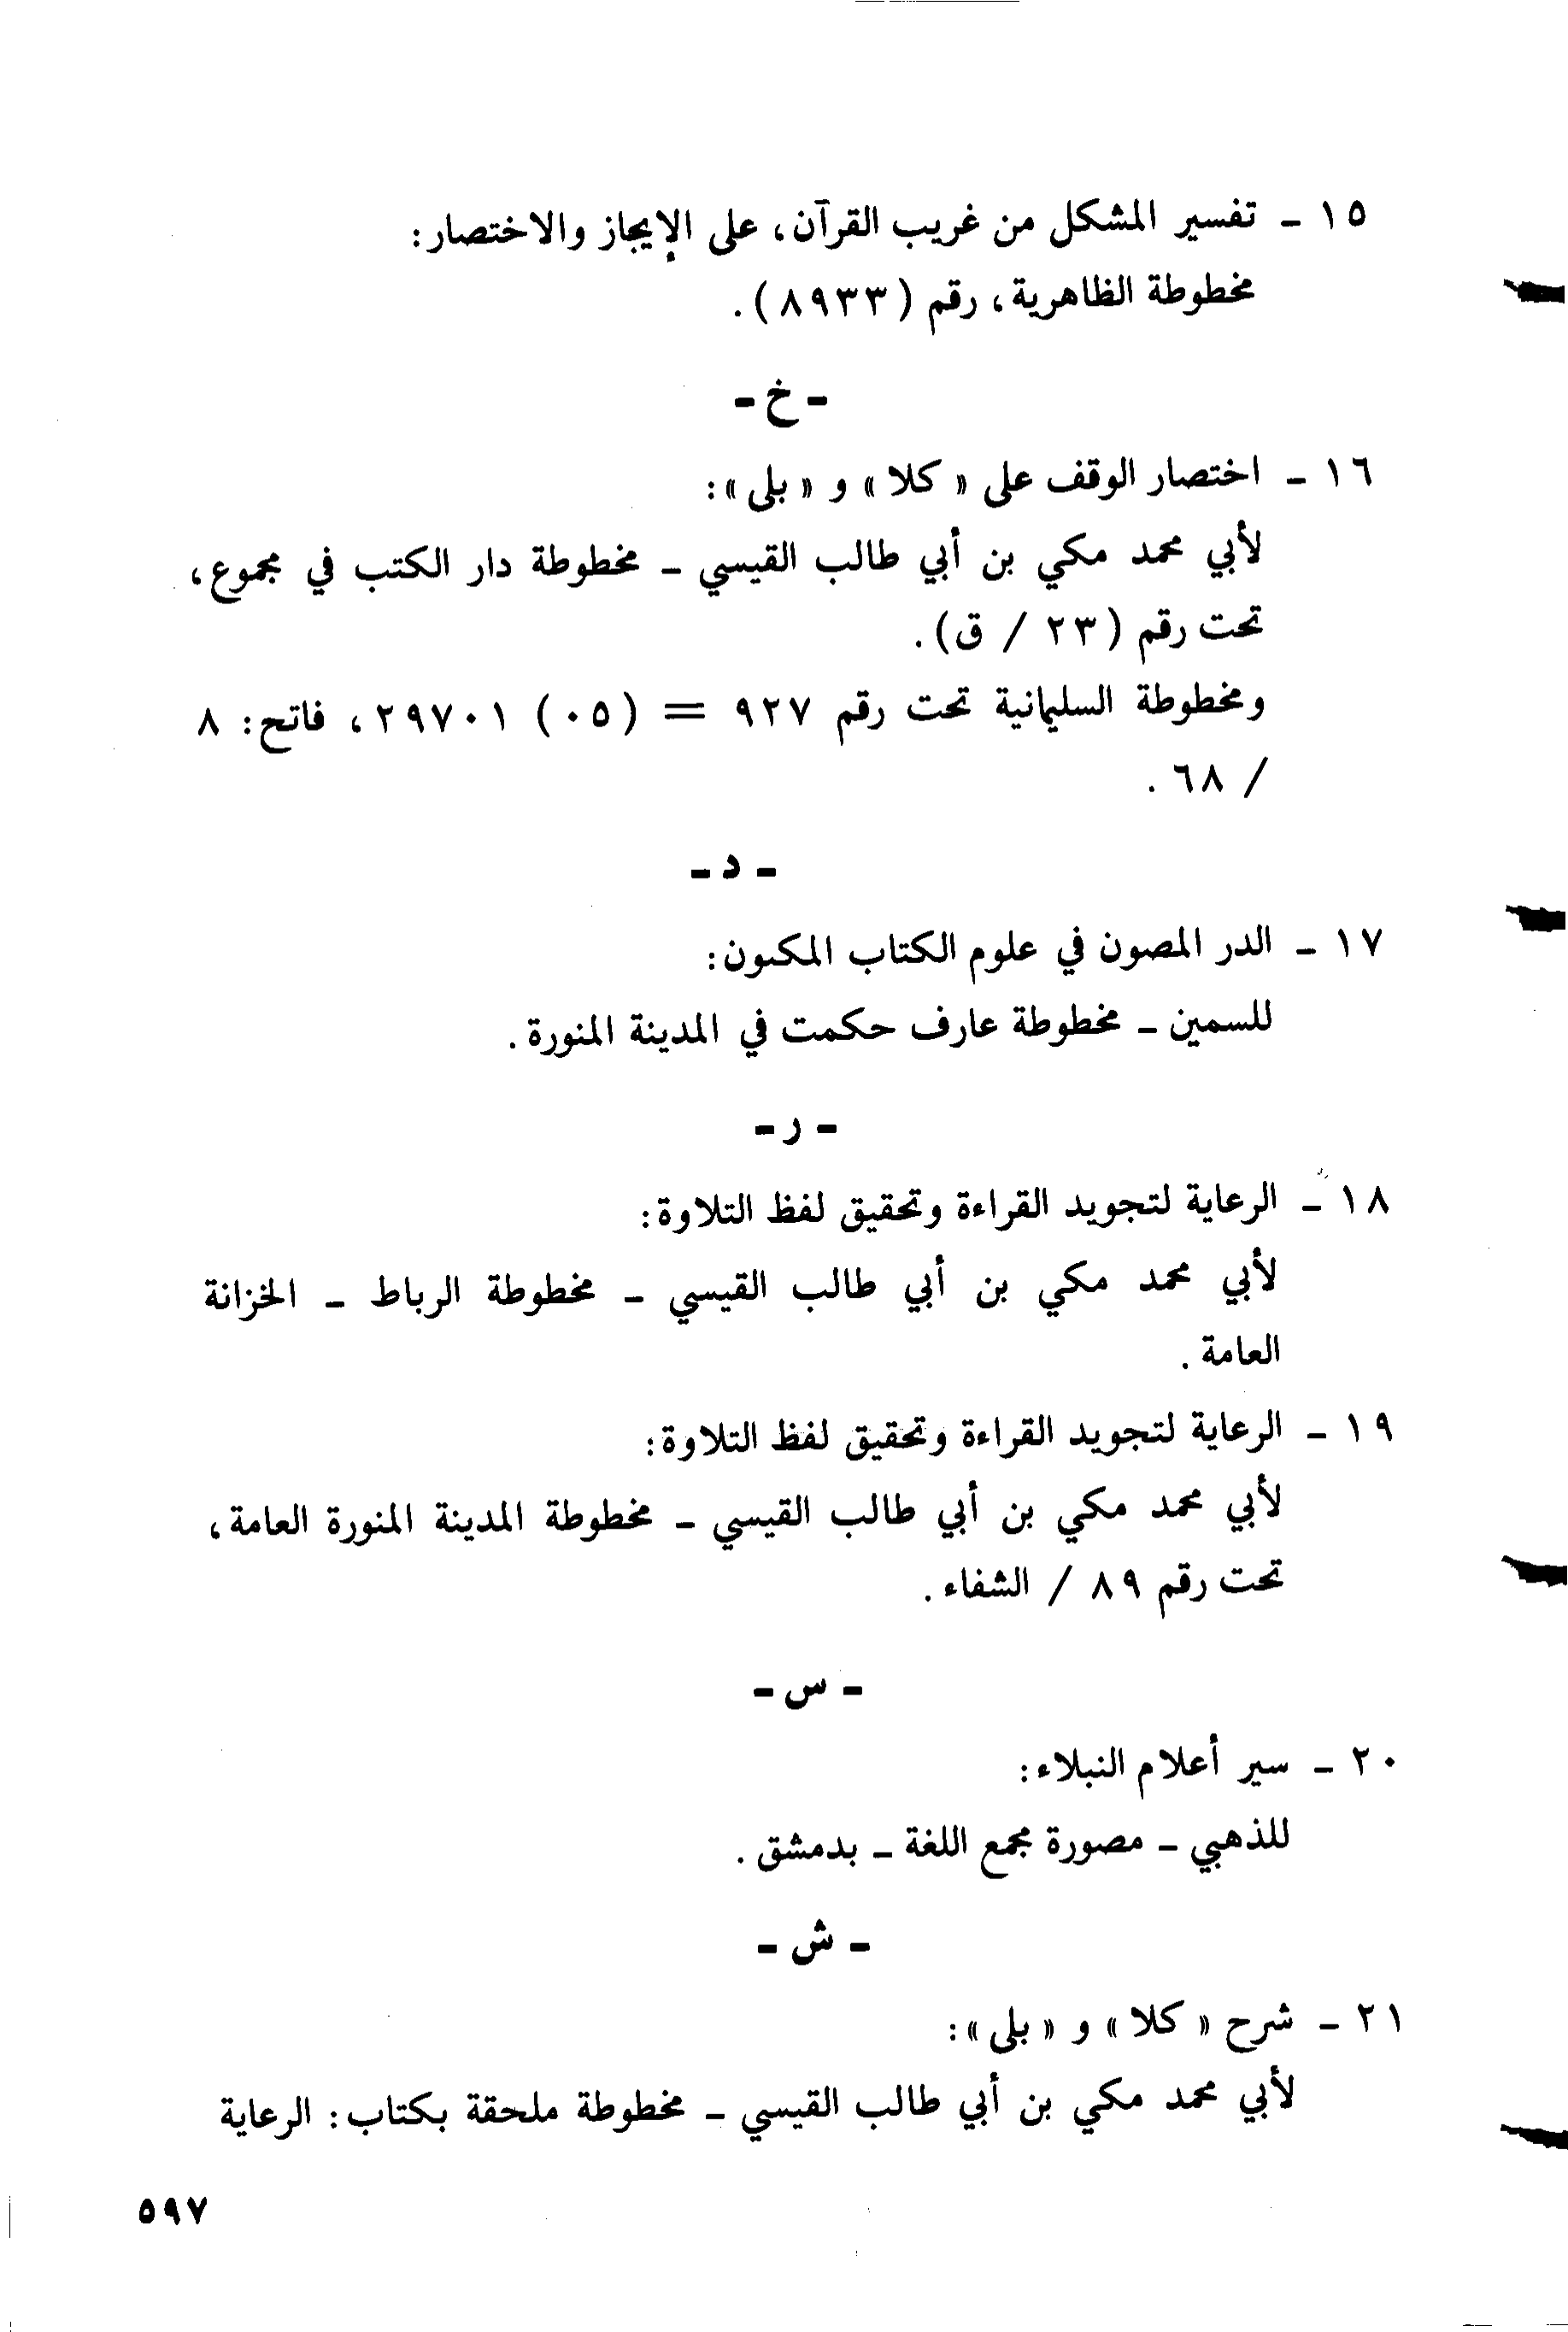 ١٥ ـ تفسير المشكل من غريب القرآن، على الإيجاز والاختصار:
مخطوطة الظاهرية، رقم (٨٩٣٣).
ـ خ ـ
١٦ ـ اختصار الوقف على «كلا» و «بلى»:
لأبي محمد مكي بن أبي طالب القيسي ـ مخطوطة دار الكتب في مجموع،
تحت رقم (٢٣ / ق).
ومخطوطة السليمانية تحت رقم ٩٢٧ = (٠٥) ٢٩٧٠١، فاتح: ٨
/ ٦٨.
ـ د ـ
١٧ ـ الدر المصون في علوم الكتاب المكنون:
للسمين ـ مخطوطة عارف حكمت في المدينة المنورة.
ـ ر ـ
١٨ ـ الرعاية لتجويد القراءة وتحقيق لفظ التلاوة:
لأبي محمد مكي بن أبي طالب القيسي ـ مخطوطة الرباط ـ الخزانة
العامة.
١٩ ـ الرعاية لتجويد القراءة وتحقيق لفظ التلاوة:
لأبي محمد مكي بن أبي طالب القيسي ـ مخطوطة المدينة المنورة العامة،
تحت رقم ٨٩ / الشفاء.
ـ س ـ
٢٠ ـ سير أعلام النبلاء:
للذهبي ـ مصورة مجمع اللغة ـ بدمشق.
ـ ش ـ
٢١ ـ شرح «كلا» و «بلى»:
لأبي محمد مكي بن أبي طالب القيسي ـ مخطوطة ملحقة بكتاب: الرعاية
٥٩٧